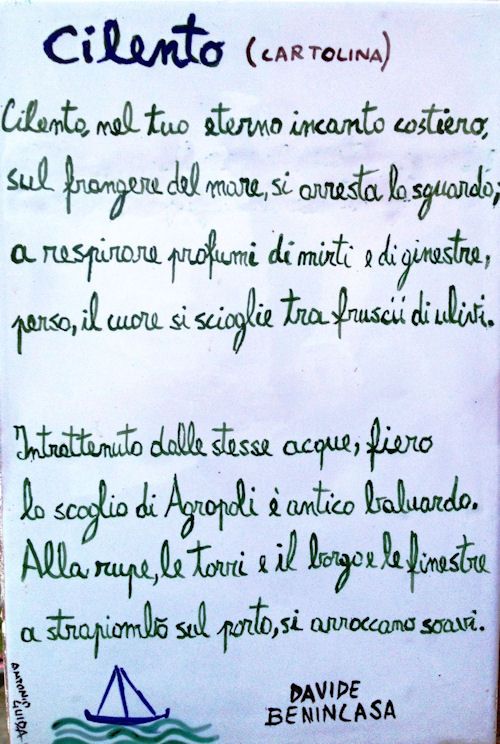 Cilento (CARTOLINA)
Cilento, nel tuo eterno incanto costiero,
sul frangere del mare, si arresta lo sguardo;
a respirare profumi di mirti e di ginestre,
perso, il cuore si scioglie tra fruscii di ulivi.
Intrattenuto dalle stesse acque, fiero
lo scoglio di Agropoli è antico baluardo.
Alla rupe, le torri e il borgo e le finestre
a strapiombo sul porto, si arroccano soavi.
ANTONIO GUIDA
DAVIDE
BENINCASA